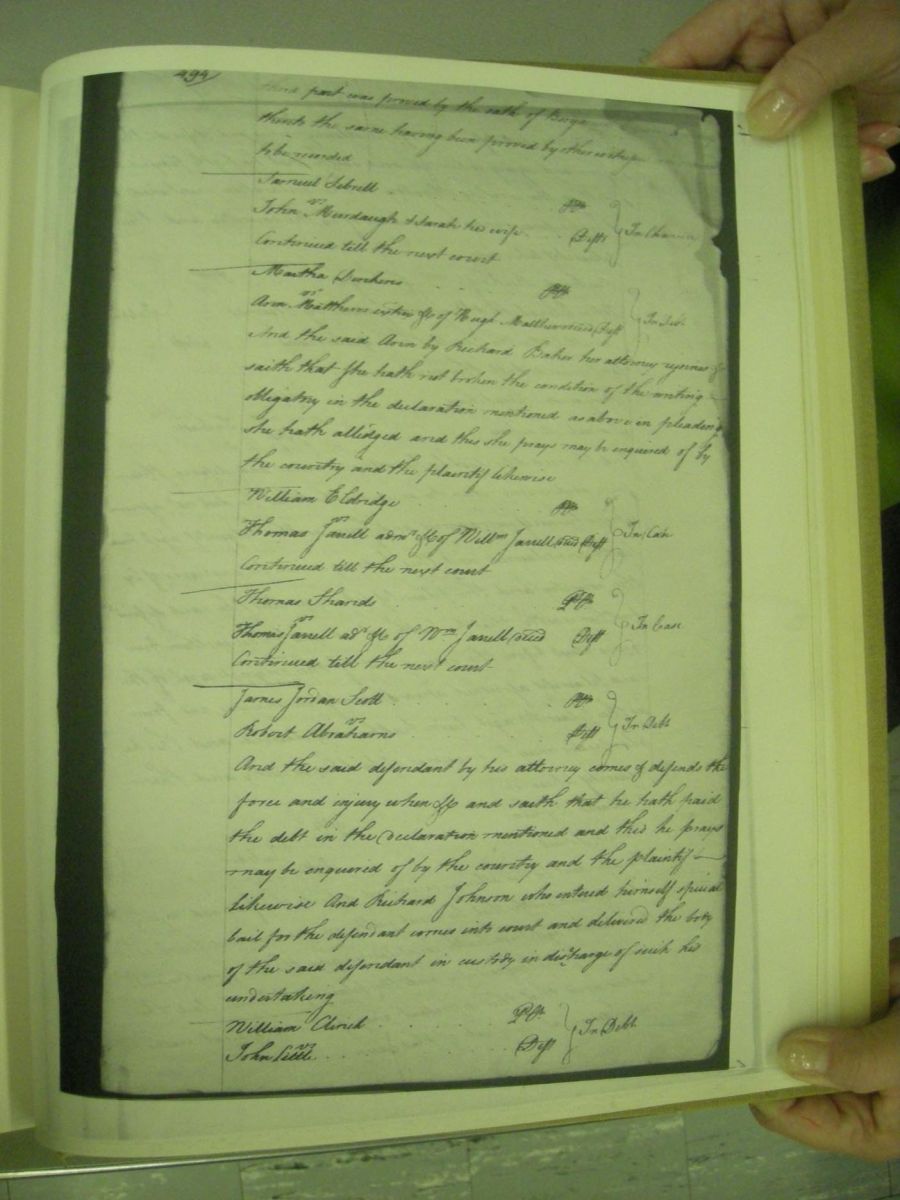 494
third part was proved by the oath of Benja
thereto the same having been proved by other
to be recorded
Samuel Sebrell Plt
vs
John Murdaugh & Sarah his wife Defts } In Chancery
Continued till the next court
Martha Plt
vs
Ann Matthews &c of Hugh Matthews decd Deft } In Debt
And the said Ann by Richard Baker her attorney rejoines &
saith that she hath not broken the condition of the writing
obligatory in the declaration mentioned as above in pleading
she hath alledged and this she prays may be enquired of by
the country and the plaintif likewise
William Eldridge Plt
vs
Thomas Jarrell admr &c of Willm Jarrell decd Deft } In Case
Continued till the next court
Thomas Sharids Plt
vs
Thomas Jarrell adr &c of Wm Jarrell decd Deft } In Case
Continued till the next court
James Jordan Scott Plt
vs
Robert Abrahams Deft } In Debt
And the said defendant by his attorney comes & defends the
force and injury when &c and saith that he hath paid
the debt in the declaration mentioned and this he prays
may be enquired of by the country and the plaintif
likewise And Richard Johnson who entered himself special
bail for the defendant comes into court and delivered the body
of the said defendant in custody in discharge of such his
undertaking
William Plt
vs
John Little Deft } In Debt